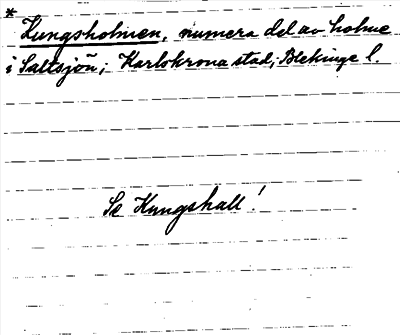 *
Kungsholmen, numera del av holme
i Saltsjön; Karlskrona stad, Blekinge l.
Se Kungshall!